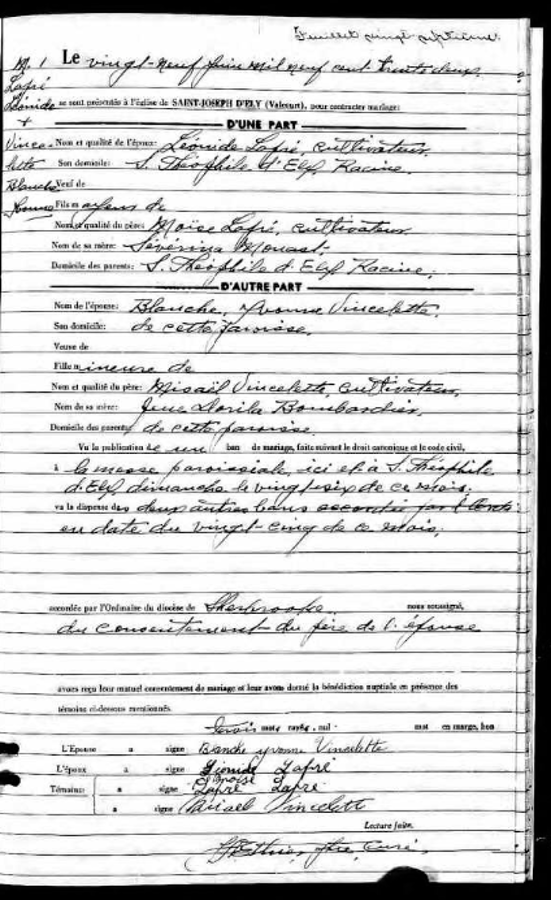 Feuillet vingt-septième.
M. 1
Lapré
Léonide
+
Vince-
lette
Blanche
Yvonne
Le vingt-neuf juin mil neuf cent trente-deux,
se sont présentés à l'église de SAINT-JOSEPH D'ELY (Valcourt), pour contracter mariage:
D'UNE PART
Nom et qualité de l'époux: Léonide Lapré, cultivateur,
Son domicile: S. Théophile d'Ely, Racine,
Veuf de
Fils majeur de
Nom et qualité du père: Moïse Lapré, cultivateur
Nom de sa mère: Sévérina Monast.
Domicile des parents: S. Théophile d'Ely, Racine,
D'AUTRE PART
Nom de l'épouse: Blanche, Yvonne Vincelette.
Son domicile: de cette paroisse.
Veuve de
Fille mineure de
Nom et qualité du père: Misaël Vincelette, cultivateur,
Nom de sa mère: Dorila Bombardier,
Domicile des parents: de cette paroisse
Vu la publication de un ban de mariage, faite suivant le droit canonique et le code civil,
à la messe paroissiale, ici et à S. Théophile
d'Ely, dimanche le vingt-six de ce mois.
vu la dispense des deux autres bans accordée par
en date du vingt-cinq de ce mois,
accordée par l'Ordinaire du diocèse de Sherbrooke nous soussigné,
du consentement du père de l'épouse
avons reçu leur mutuel consentement de mariage et leur avons donné la bénédiction nuptiale en présence des
témoins ci-dessous mentionnés.
trois mots rayés, nul. mot en marge, bon
L'Epouse a signé Blanche Yvonne Vincelette
L'époux a signé Léonide Lapré
Témoins: a signé Moïse Lapré Lapré
a signé Misael Vincelette
Lecture faite.
Ptre, Curé.